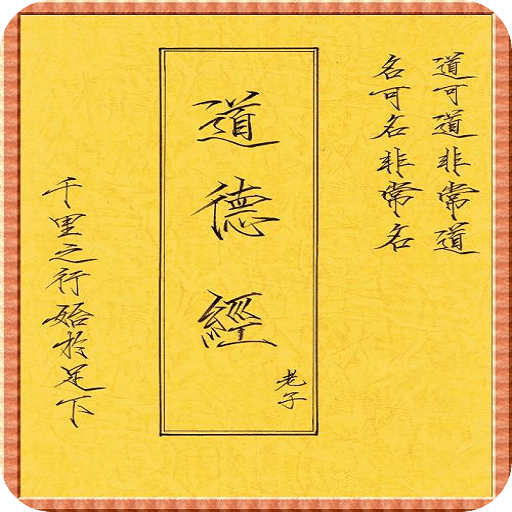 道可道非常道
名可名非常名
道德經
老子
千里之行始於足下